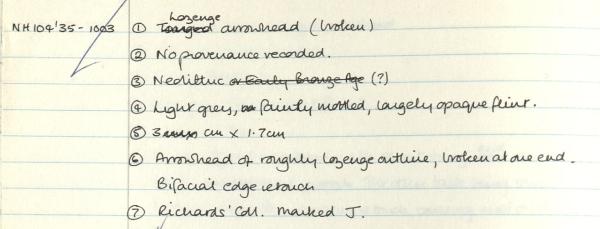 NH104'35-1003 ① Lozenge Tanged arrowhead (broken)
② No provenance recorded.
③ Neolithic or Early Bronze Age (?)
④ Light grey, faintly mottled, largely opaque flint.
⑤ 3 cm x 1.7cm
⑥ Arrowhead of roughly lozenge outline, broken at one end.
Bifacial edge retouch
⑦ Richards' Coll. Marked J.